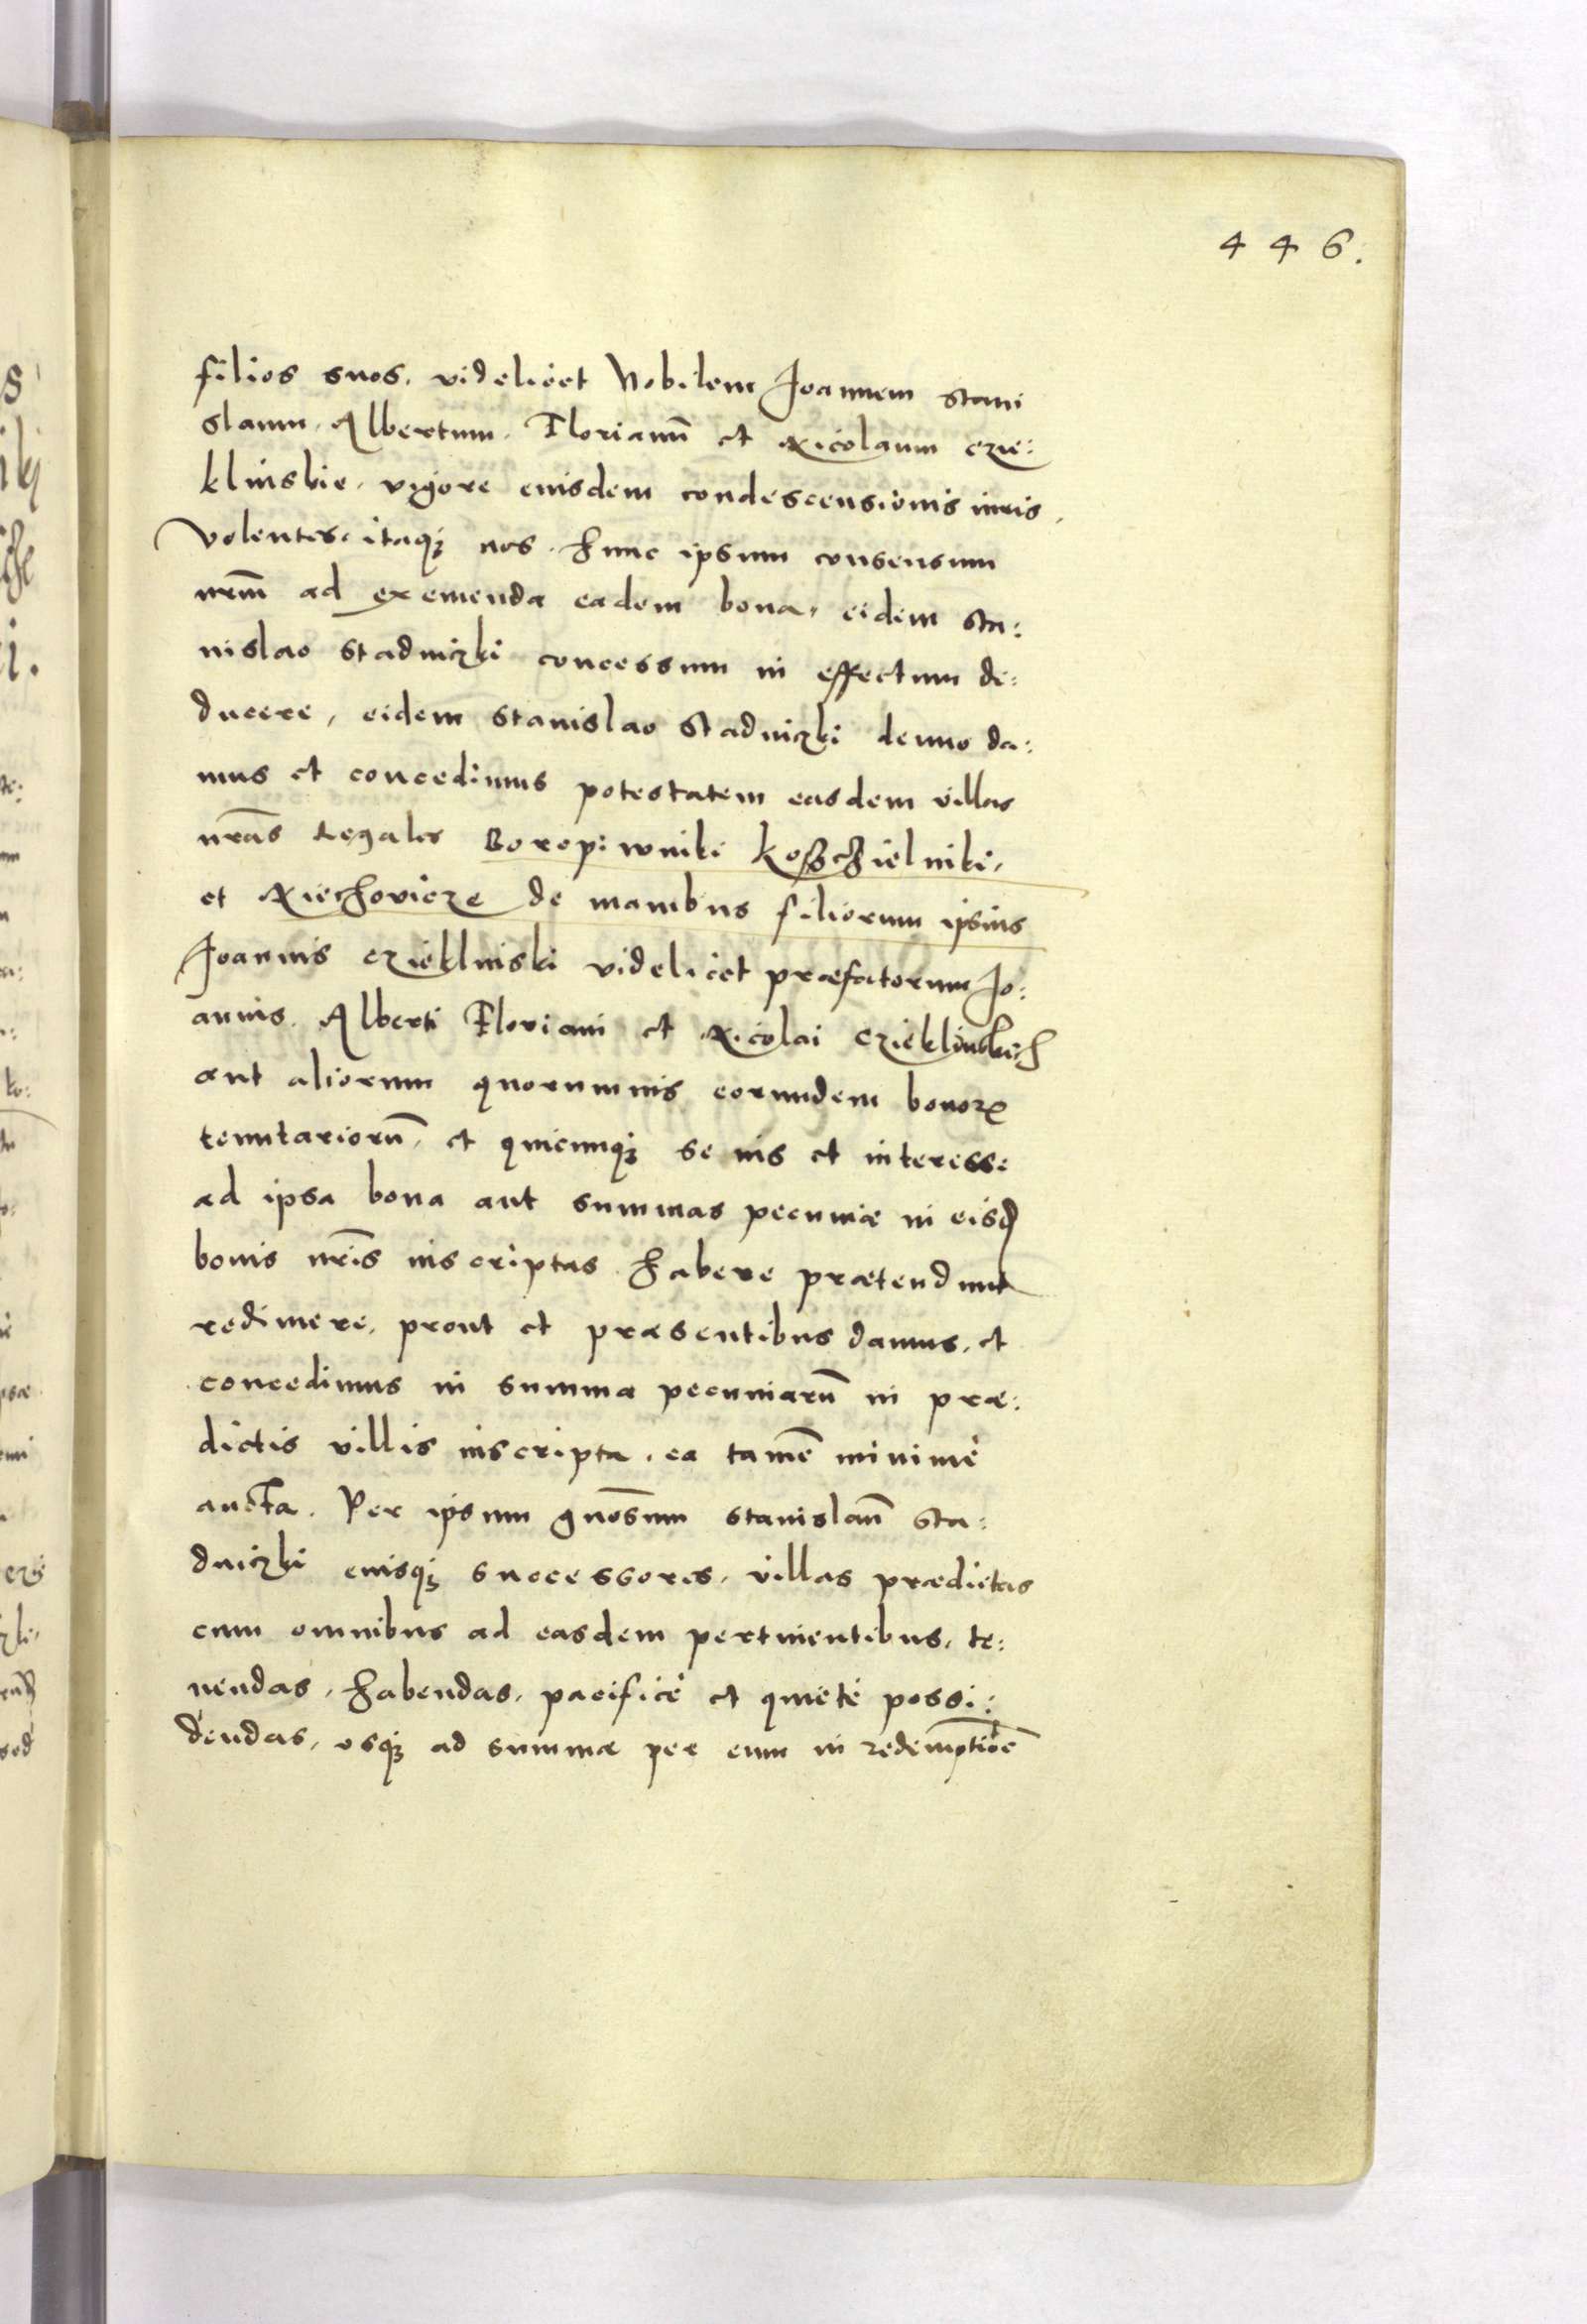 446.
filios suos, videlicet Nobilem Joannem Stani
slaum, Albertum, Florianũ et Nicolaum Czie:
klinskie, vigore eiusdem condescensionis iuris,
Volentes itaqʒ nos hunc ipsum consensum
nrm̃ ad exemenda eadem bona, eidem Sta:
nislao Stadniczki concessum in effectum de:
ducere, eidem Stanislao Stadniczki denuo da:
mus et concedimus potestatem easdem villas
nrãs Regales Koropiwniki Koszczielniki,
et Niechovicze de manibus filiorum ipsius
Joannis Czieklinski videlicet præfatorum Jo:
annis, Alberti Floriani et Nicolai Czieklinskich
aut aliorum quorumuis eorundem bonoꝝ
tenutariorũ, et quicunqʒ se ius et interesse
ad ipsa bona aut summas pecuniæ in eisd̃
bonis nrĩs inscriptas habere prætendunt
redimere, prout et præsentibus damus, et
concedimus in summa pecuniarũ in præ:
dictis villis inscripta, ea tamẽ minimè
aucta. Per ipsum gnõsum Stanislaũ Sta:
dniczki eiusqʒ successores, villas prædictas
cum omnibus ad easdem pertinentibus, te:
nendas, habendas, pacificè et quietè possi:
dendas, vsqʒ ad summæ per eum in redemptiõe